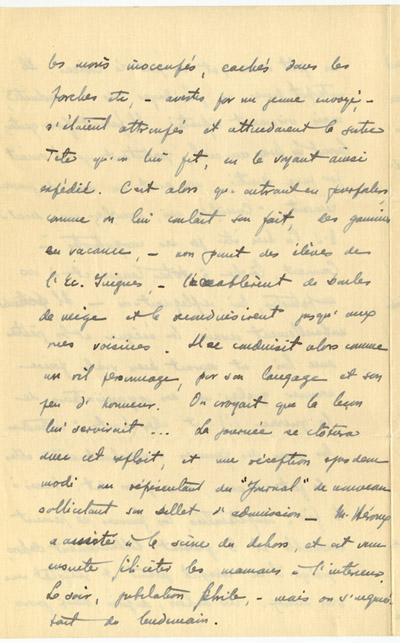 les voisins inoccupés, cachés dans les
porches etc, - avertis par un jeune envoyé, -
s'étaient attroupés et attendaient le
Tete qu'on lui fit, en le voyant ainsi
expédié. C'est alors que
comme on lui contait son fait, les gamins
en vacance, - non point des élèves de
l'Ec. Guigues, - l'accablèrent de boules
de neige et le reconduisirent jusqu'aux
rues voisines. Il se conduisit alors comme
un vil personnage, par son langage et son
peu d'honneur. On croyait que la leçon
lui servirait ... La journée se clôtura
avec cet exploit, et une réception
modi un représentant du "Journal" de nouveau
sollicitant son billet d'admission - M.
a assisté à la scène du dehors, et est venu
ensuite féliciter les mamans à l'intérieur.
Le soir, jubilation fébrile, - mais on s'inquié-
tait du lendemain.